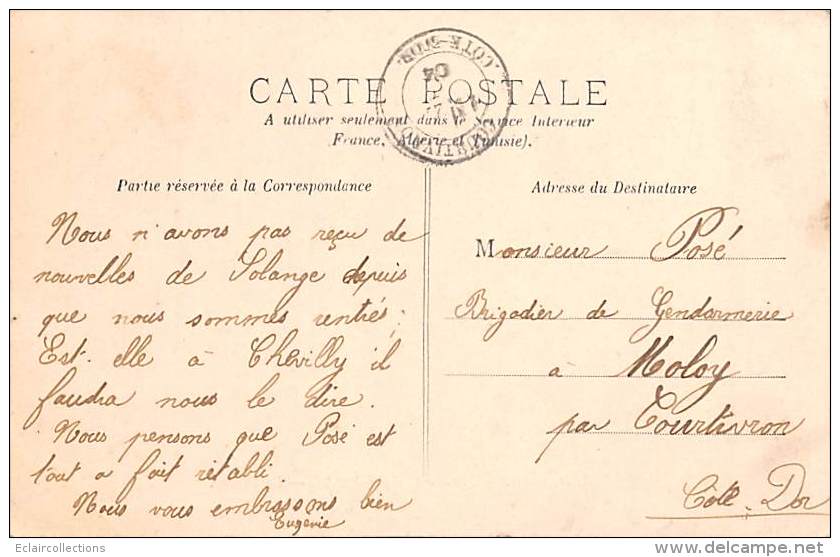 CARTE POSTALE
A utiliser seulement dans le Service Interieur
France, Algerie et Tunisie).
COTE-D'OR
04
Partie réservée à la Correspondance
Adresse du Destinataire
Nous n'avons pas reçu de
nouvelles de Solange depuis
que nous sommes rentrés;
Est-elle à Chevilly il
faudra nous le dire.
Nous pensons que Posé est
tout a fait rétabli.
Nous vous embrassons bien
Eugénie
Monsieur Posé
Brigadier de Gendarmerie
à Moloy
par Courtivron
Côte-Dor
Eclaircollections
delcampe.net